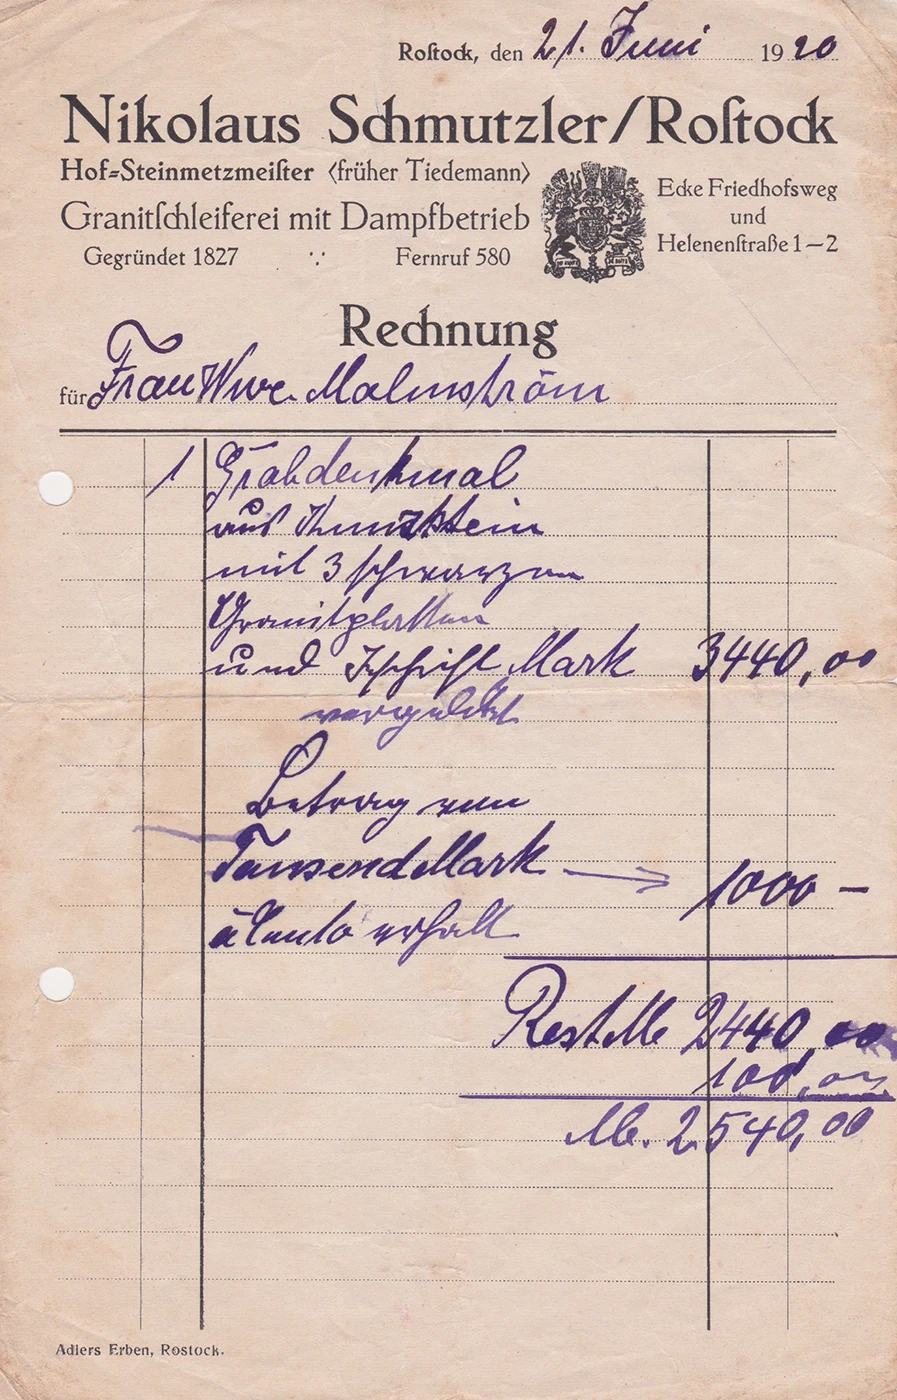 Rostock, den 21. Juni 1920
Nikolaus Schmutzler/Rostock
Hof=Steinmetzmeister <früher Tiedemann>
Granitschleiferei mit Dampfbetrieb
Gegründet 1827 Fernruf 580
Ecke Friedhofsweg
und
Helenenstraße 1–2
Rechnung
für Frau Wwe. Malmström
1 Grabdenkmal
aus Kunststein
mit 3 schwarzen
Granitplatten
und Schrift Mark 3440,00
vergoldet
Betrag von
Tausend Mark → 1000 –
à Conto erhalt
Rest M 2440,00
100,00
M. 2540,00
Adlers Erben, Rostock.